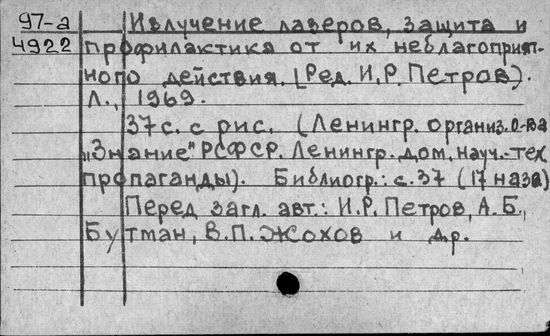 97-а
4922
Излучение лазеров, защита и
профилактика от их неблагоприят-
ного действия. [Ред. И.Р. Петров].
Л., 1969.
37 с. с рис. (Ленингр. организ. о-ва
"Знание" РСФСР. Ленингр. дом. науч.-тех.
пропаганды). Библиогр.: с. 37 (17 назв)
Перед загл. авт.: И.Р. Петров, А.Б.
Бутман, В.П. Жохов и др.